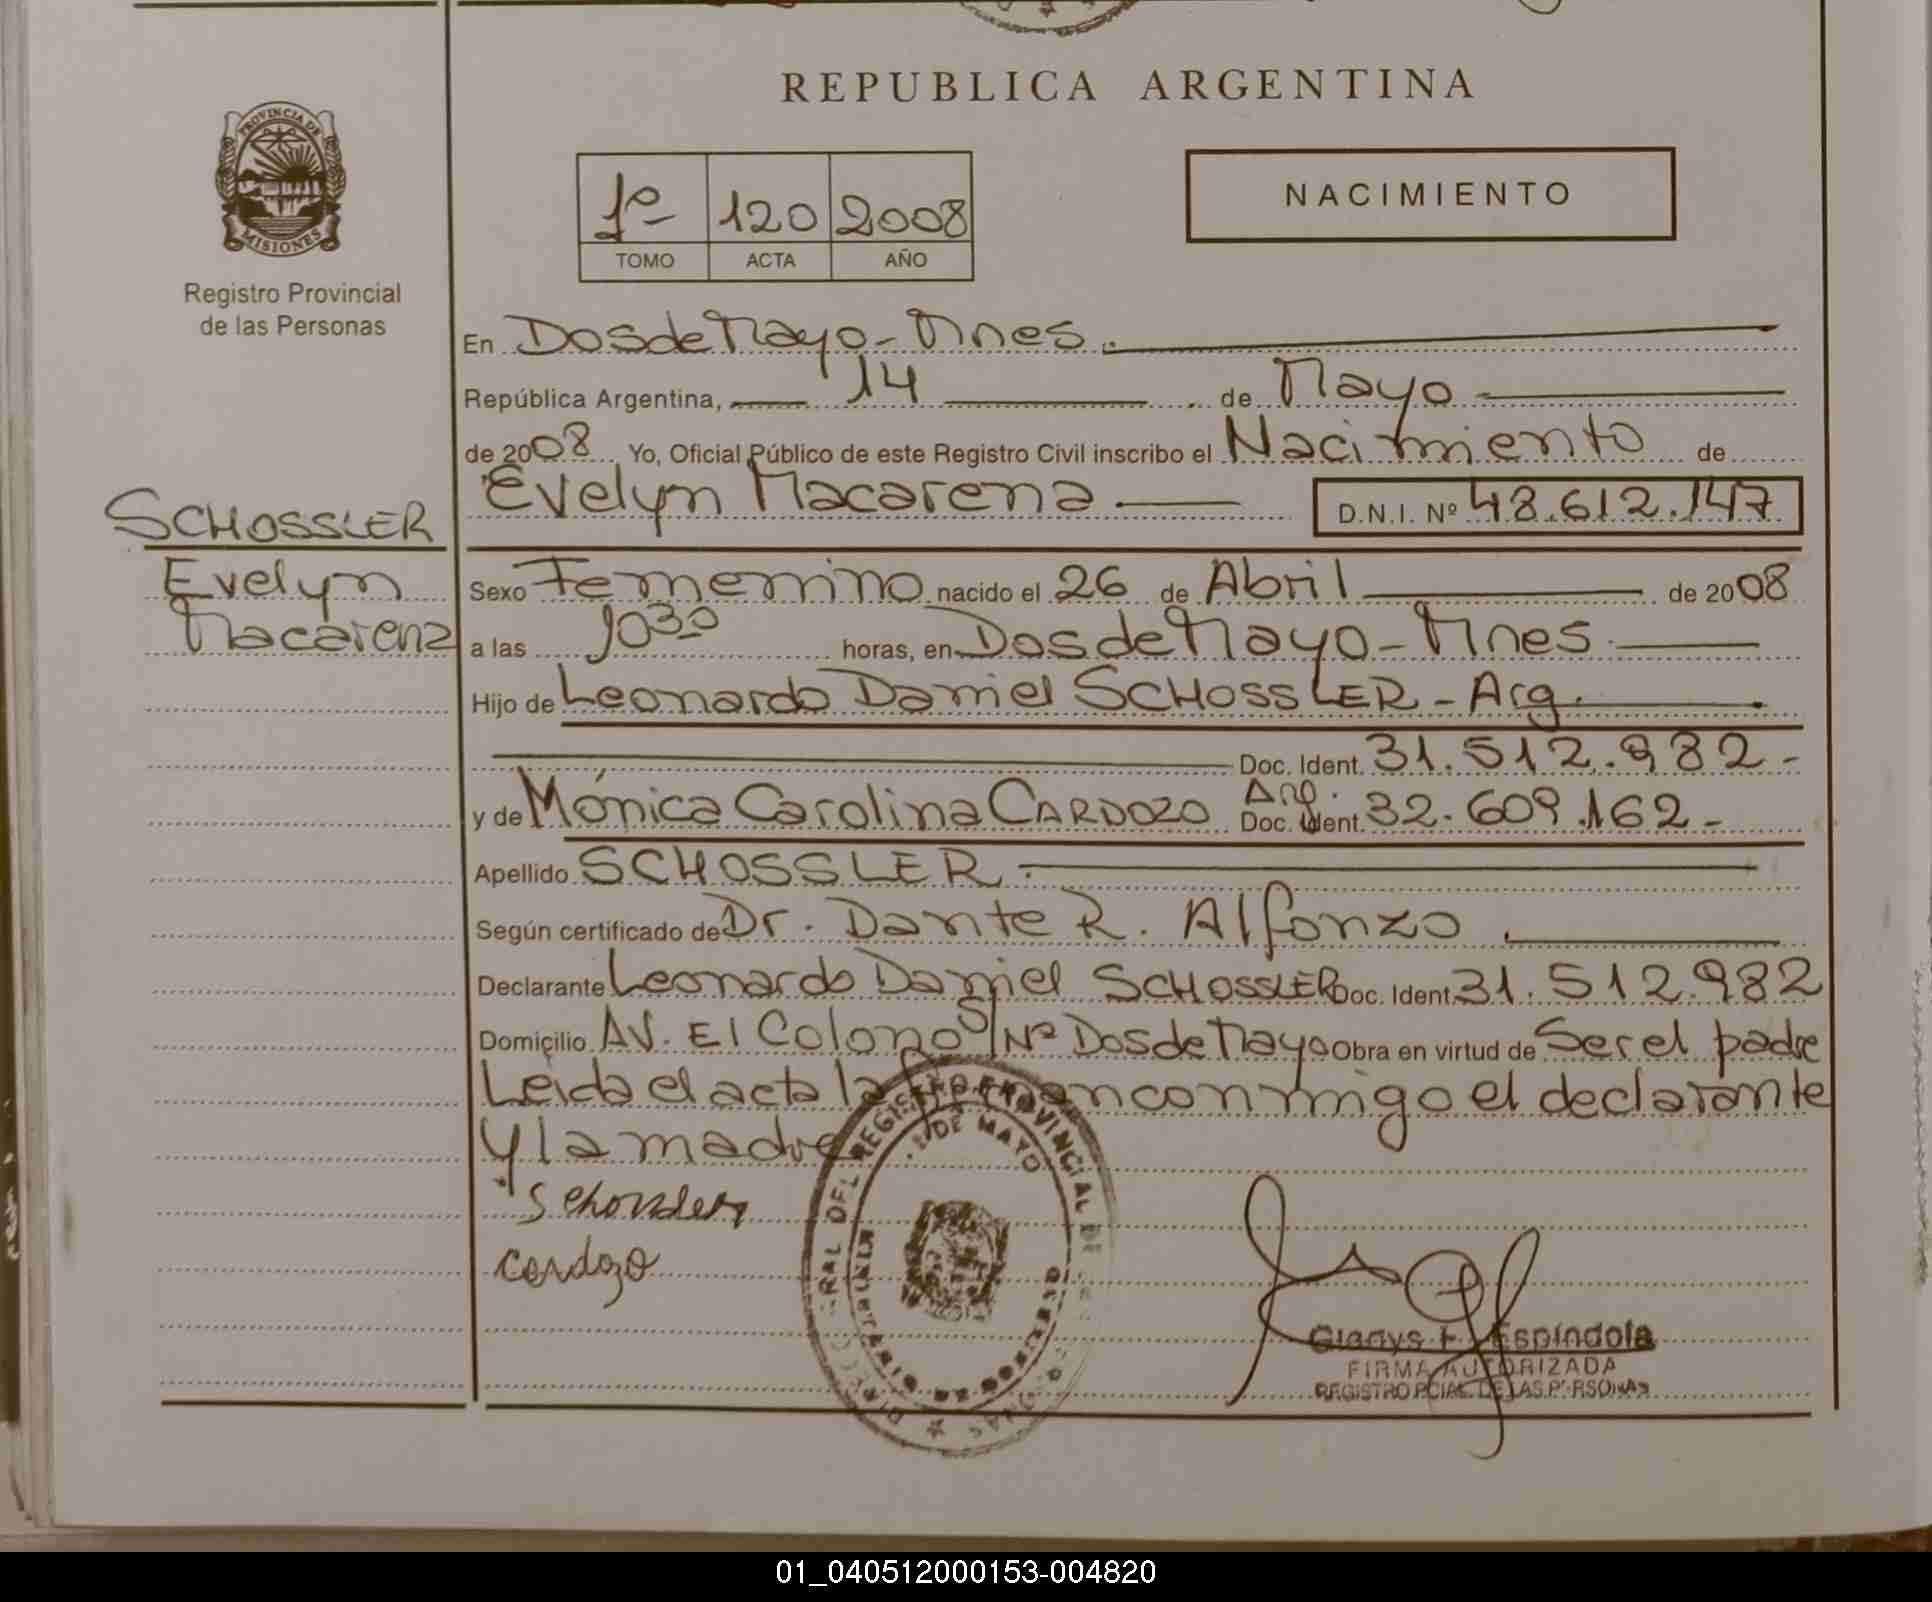 REPUBLICA ARGENTINA
PROVINCIA DE
MISIONES
Registro Provincial
de las Personas
1º 120 2008
TOMO ACTA AÑO
NACIMIENTO
En Dos de Mayo - Mnes.
República Argentina, 14 de Mayo
de 2008 Yo, Oficial Público de este Registro Civil inscribo el Nacimiento de
Evelyn Macarena D.N.I. Nº 48.612.147
SCHOSSLER
Evelyn
Macarena
Sexo Femenino nacido el 26 de Abril de 2008
a las 10 30 horas, en Dos de Mayo - Mnes.
Hijo de Leonardo Daniel SCHOSSLER - Arg.
Doc. Ident. 31.512.982 -
y de Mónica Carolina CARDOZO Arg. Doc. Ident. 32.609.162 -
Apellido SCHOSSLER.
Según certificado de Dr. Dante R. Alfonzo.
Declarante Leonardo Daniel SCHOSSLER Doc. Ident. 31.512.982
Domicilio AV. El Colono S/Nº Dos de Mayo Obra en virtud de Ser el padre
Leida el acta la firman conmigo el declarante
y la madre
Schossler
Cardozo
REGISTRO PROVINCIAL DE
2 DE MAYO
Gladys F. Espíndola
FIRMA AUTORIZADA
REGISTRO PCIAL. DE LAS PERSONAS
01_040512000153-004820